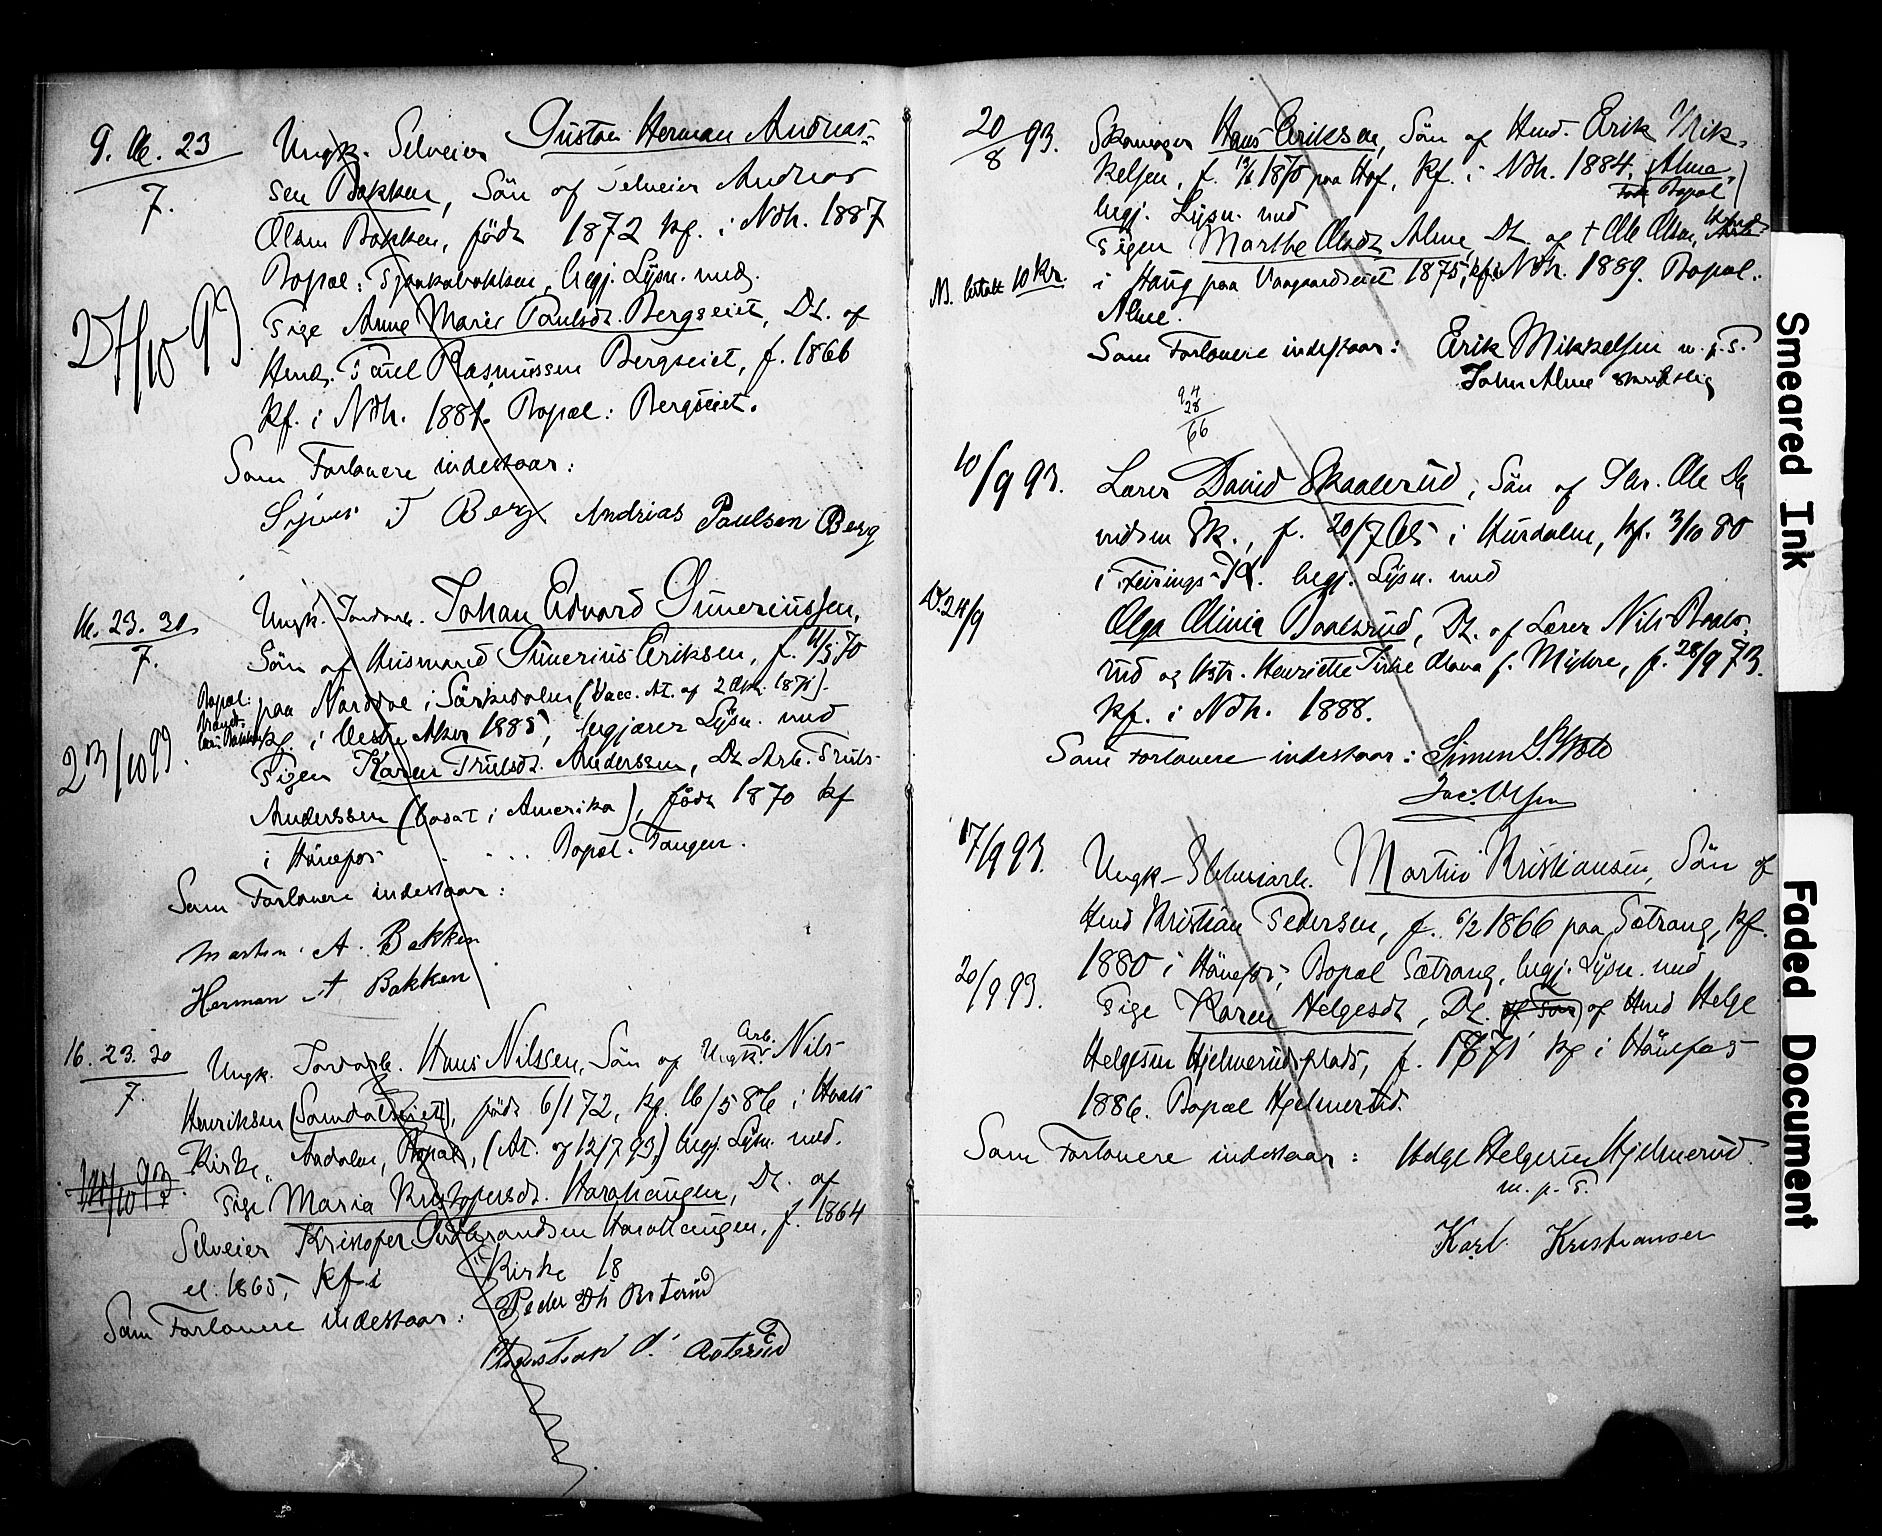 9. 16. 23
7.
Ungk. Selveier Gustav Herman Andreas-
sen Bakken, Sön af Selveier Andreas
Olsen Bakken, födt 1872 kf. i Ndh. 1887
Bopæl: begj. Lysn. med.
27/10 93
Pige Anne Marie Paulsdt. Bergseiet, Dt. af
Hmd. Paul Rasmussen Bergseiet, f. 1866
Kf. i Ndh. 1881. Bopæl: Bergseiet.
Som Forlovere indestaar:
P Berg Andrias Paulsen Berg
16. 23. 30
7.
Ungk. Jordarb. Johan Edvard Guneriussen,
Sön af Husmand Gunerius Eriksen, f. 4/5 70
Bopæl: paa i Sörkedalen (Vacc. At. af
kf. i Vestre Aker 1885, begjærer Lysn. med
23/10 93
Pigen Karen Trulsdt. Anderssen, Dt. Arb. Truls
Anderssen (bosat i Amerika), födt 1870 kf
i Hönefos Bopæl. Tangen.
Som Forlovere indestaar:
Martin A. Bakken
Herman A Bakken
16. 23. 30
7.
Ungk. Jordarb. Hans Nilsen, Sön af Ungk. Arb. Nils
Henriksen (Somdalseiet), födt 6/1 72, kf. 16/5 86 i Hvals
Kirke, Aadalen, Bopæl, (At. af 12/7 93) begj. Lysn. med.
Pige Maria Kristofersdt. Haraldhaugen, Dt. af
Selveier Kristofer Gudbrandsen Haraldhaugen, f. 1864
el. 1865, kf. i Kirke 18
Som Forlovere indestaar: Peder
20/8 93.
Hans Eriksen, Sön af Hmd. Erik Mik-
kelsen, f. 1870 paa Hof, kf. i Ndh. 1884, Alme
Bopæl
begj. Lysn. med
Pigen Marthe Olsdt. Alme, Dt. af † Ole Olsen,
NB. betalt 10 Kr.
i Haug paa 1875, kf. i Ndh. 1889. Bopæl:
Alme.
Som Forlovere indestaar: Erik Mikkelsen m. p. P.
John Alme
94
28
66
10/9 93.
Lærer David Skaalerud, Sön af Ole Da
vidsen Sk., f. 20/7 65 i Hurdalen, kf. 3/10 80
i Feirings K. begj. Lysn. med
24/9
Olga Olivia Baalsrud, Dt. af Lærer Nils Baals-
rud og Hstr. Henriette f. Myhre, f. 28/9 73.
Kf. i Ndh. 1888.
Som Forlovere indestaar: Simen
Jac: Olsen
17/9 93.
Ungk. Martin Kristiansen, Sön af
Hmd Kristian Pedersen, f. 6/2 1866 paa Sætrang, kf.
1880 i Hönefos, Bopæl Sætrang, begj. Lysn. med
20/9 93.
Pige Karen Helgesdt., Dt. af Hmd Helge
Helgesen Hjelmerudsplads, f. 1871 kf i Hönefos
1886. Bopæl Hjelmerud.
Som Forlovere indestaar: Helge Helgesen Hjelmerud
m. p. P.
Karl Kristiansen
Smeared Ink
Faded Document